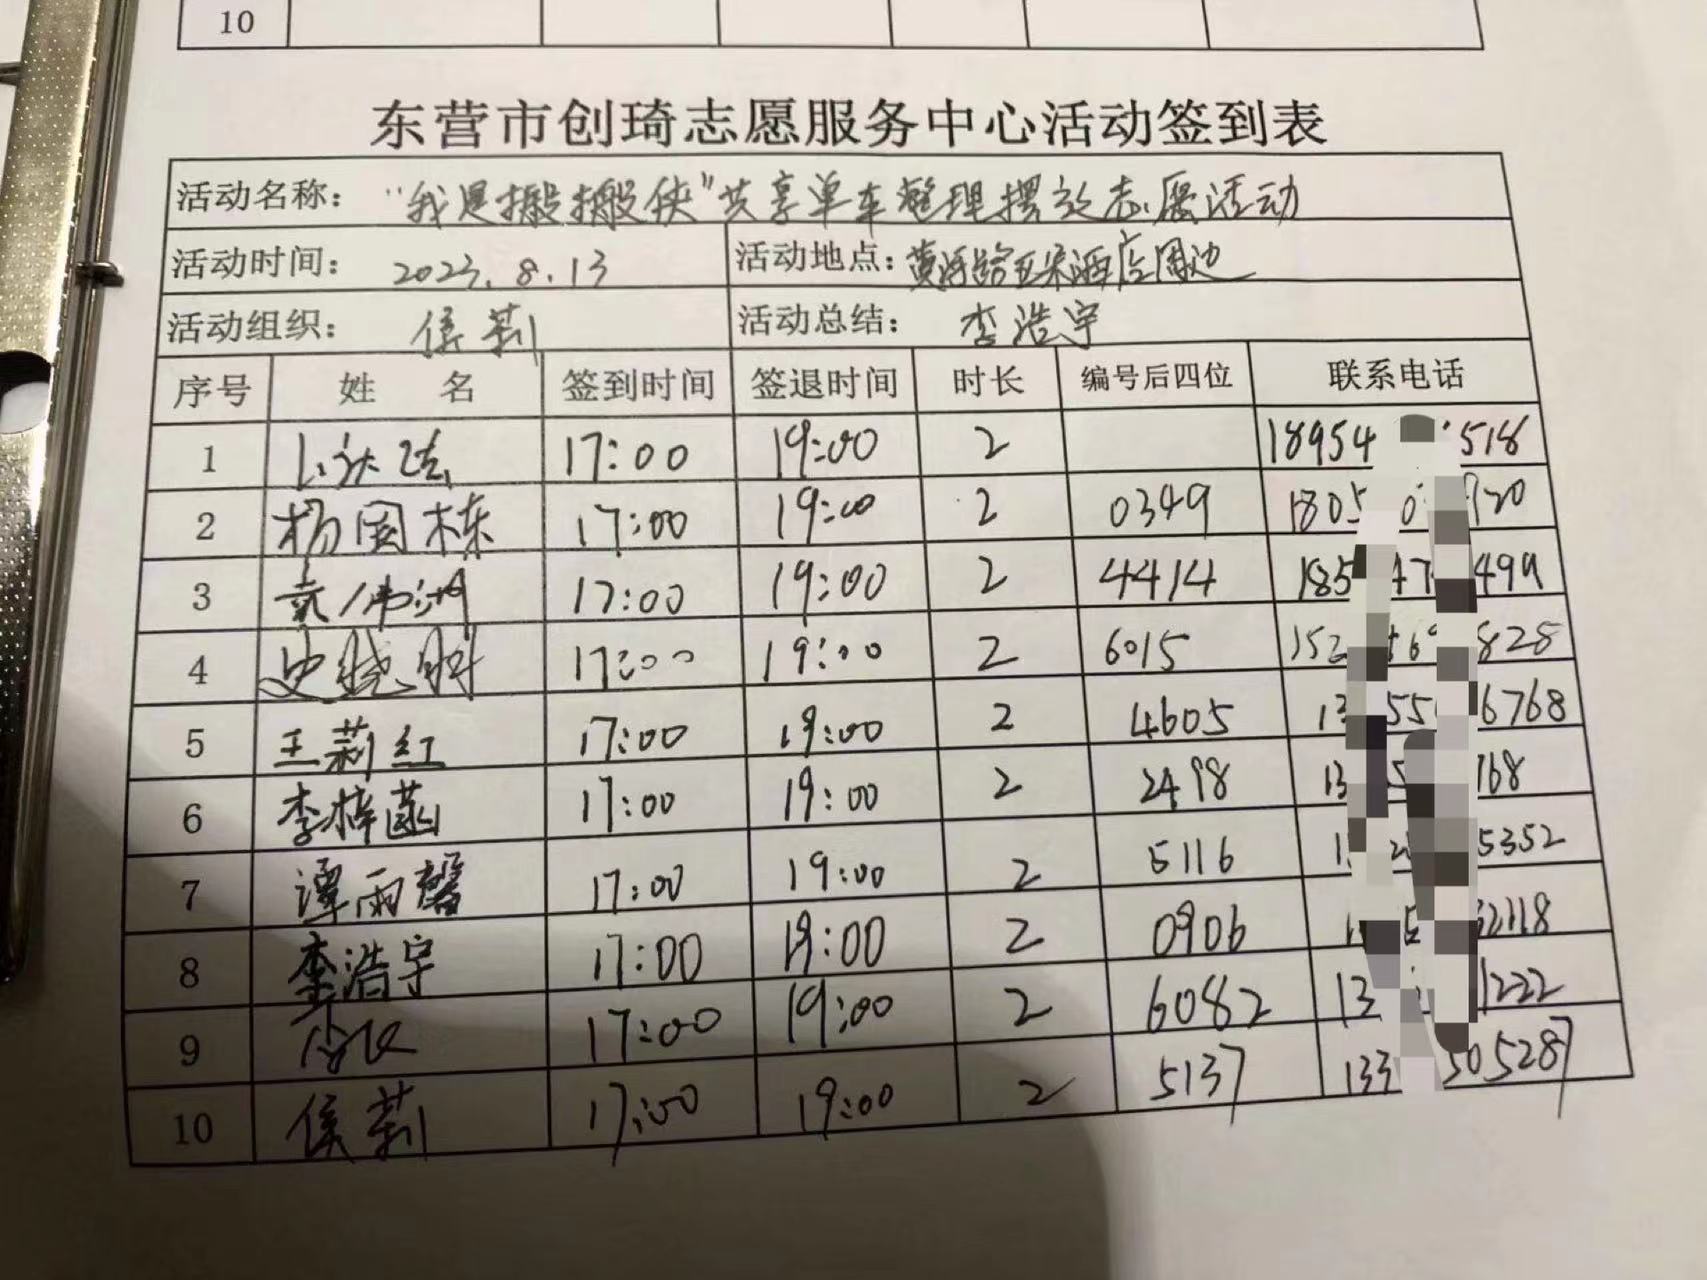 10
东营市创琦志愿服务中心活动签到表
活动名称： “我是搬搬侠”共享单车整理摆放志愿活动
活动时间： 2023.8.13 活动地点：黄河路 酒店周边
活动组织： 侯莉 活动总结： 李浩宇
序号 姓 名 签到时间 签退时间 时长 编号后四位 联系电话
1 17:00 19:00 2 18954 518
2 杨国栋 17:00 19:00 2 0349 1805 0 920
3 袁伟洲 17:00 19:00 2 4414 185 47 499
4 史晓明 17:00 19:00 2 6015 152 6 828
5 王莉红 17:00 19:00 2 4605 13 55 6768
6 李梓菡 17:00 19:00 2 2498 13 5 768
7 谭雨馨 17:00 19:00 2 5116 1 2 5352
8 李浩宇 17:00 19:00 2 0906 1 2118
9 17:00 19:00 2 6082 13 1222
10 侯莉 17:00 19:00 2 5137 133 505287